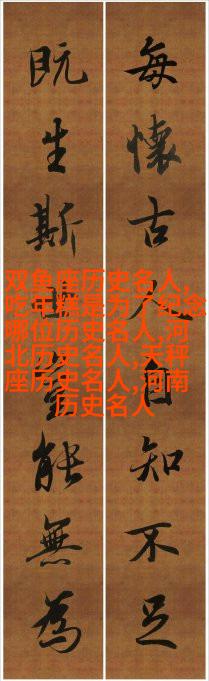 每懷古自知不足
既生斯能無為
双鱼座历史名人,
吃年糕是为了纪念
哪位历史名人,河
北历史名人,天秤
座历史名人,河南
历史名人